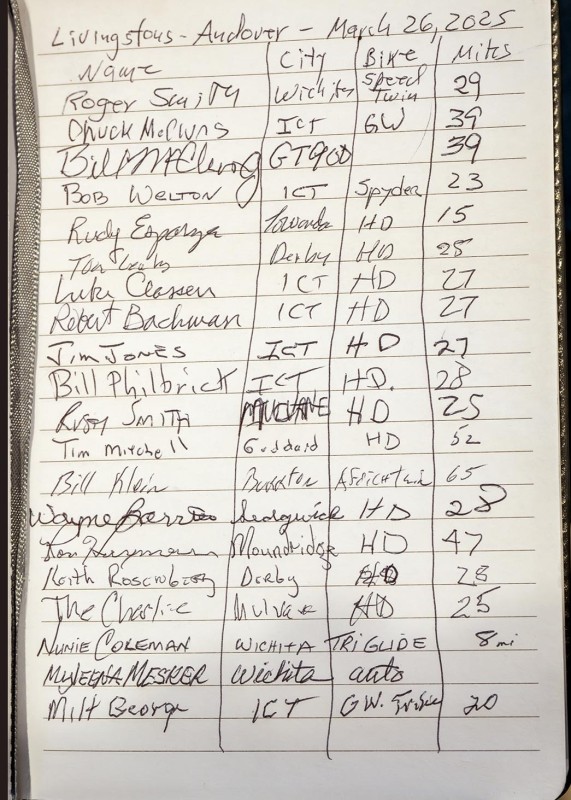 Livingstons - Andover - March 26, 2025
Name City Bike Miles
Roger Smith Wichita Speed Twin 29
Chuck ICT GW 39
Bill GT900 39
BOB WELTON ICT Spyder 23
Rudy Esparza Towanda HD 15
Tom Derby HD 25
Luke Classen ICT HD 27
Robert Bachman ICT HD 27
JIM JONES ICT HD 27
Bill Philbrick ICT HD. 28
SMITH MULVANE HD 25
Tim Mitchell Goddard HD 52
Bill Klein Burrton 65
Wayne Sedgwick HD 28
Ron Moundridge HD 47
Keith Rosenberg Derby HD 28
The Charlie Mulvane HD 25
NUNIE COLEMAN WICHITA TRIGLIDE 8 mi
MYLEENA MESKER Wichita auto
Milt George ICT GW. 20